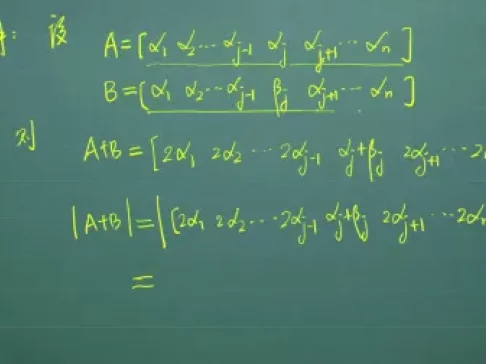 : 设 A=[α₁ α₂ ⋯ α_{j-1} α_j α_{j+1} ⋯ α_n]
B=[α₁ α₂ ⋯ α_{j-1} β_j α_{j+1} ⋯ α_n]
则 A+B=[2α₁ 2α₂ ⋯ 2α_{j-1} α_j+β_j 2α_{j+1} ⋯ 2
|A+B|=|[2α₁ 2α₂ ⋯ 2α_{j-1} α_j+β_j 2α_{j+1} ⋯ 2α_n
=